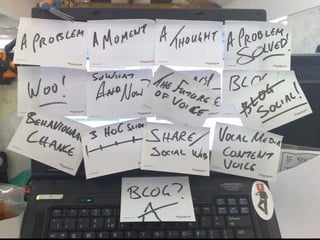 A PROBLEM
A MOMENT
A THOUGHT
A PROBLEM
SOLVED
WOO!
SO WHAT
AND NOW?
THE FUTURE
OF VOICE
BLOG
SOCIAL!
BEHAVIOURAL
CHANGE
3 HOC SLIDE
SHARE/
SOCIAL WEB
VOCAL MEDIA
CONTENT
VOICE
BLOG?
A
IF